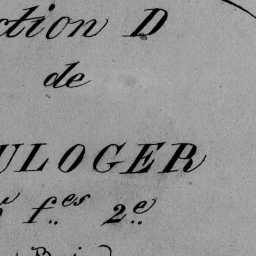 ction D
de
ULOGER
f.es 2.e